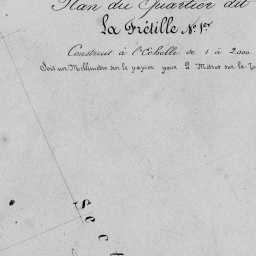 Plan du Quartier dit
La Frétille N.º 1.er
Construit à l'Echelle de 1 à 2.000
Soit un Millimètre sur le papier pour 2 Mètres sur le